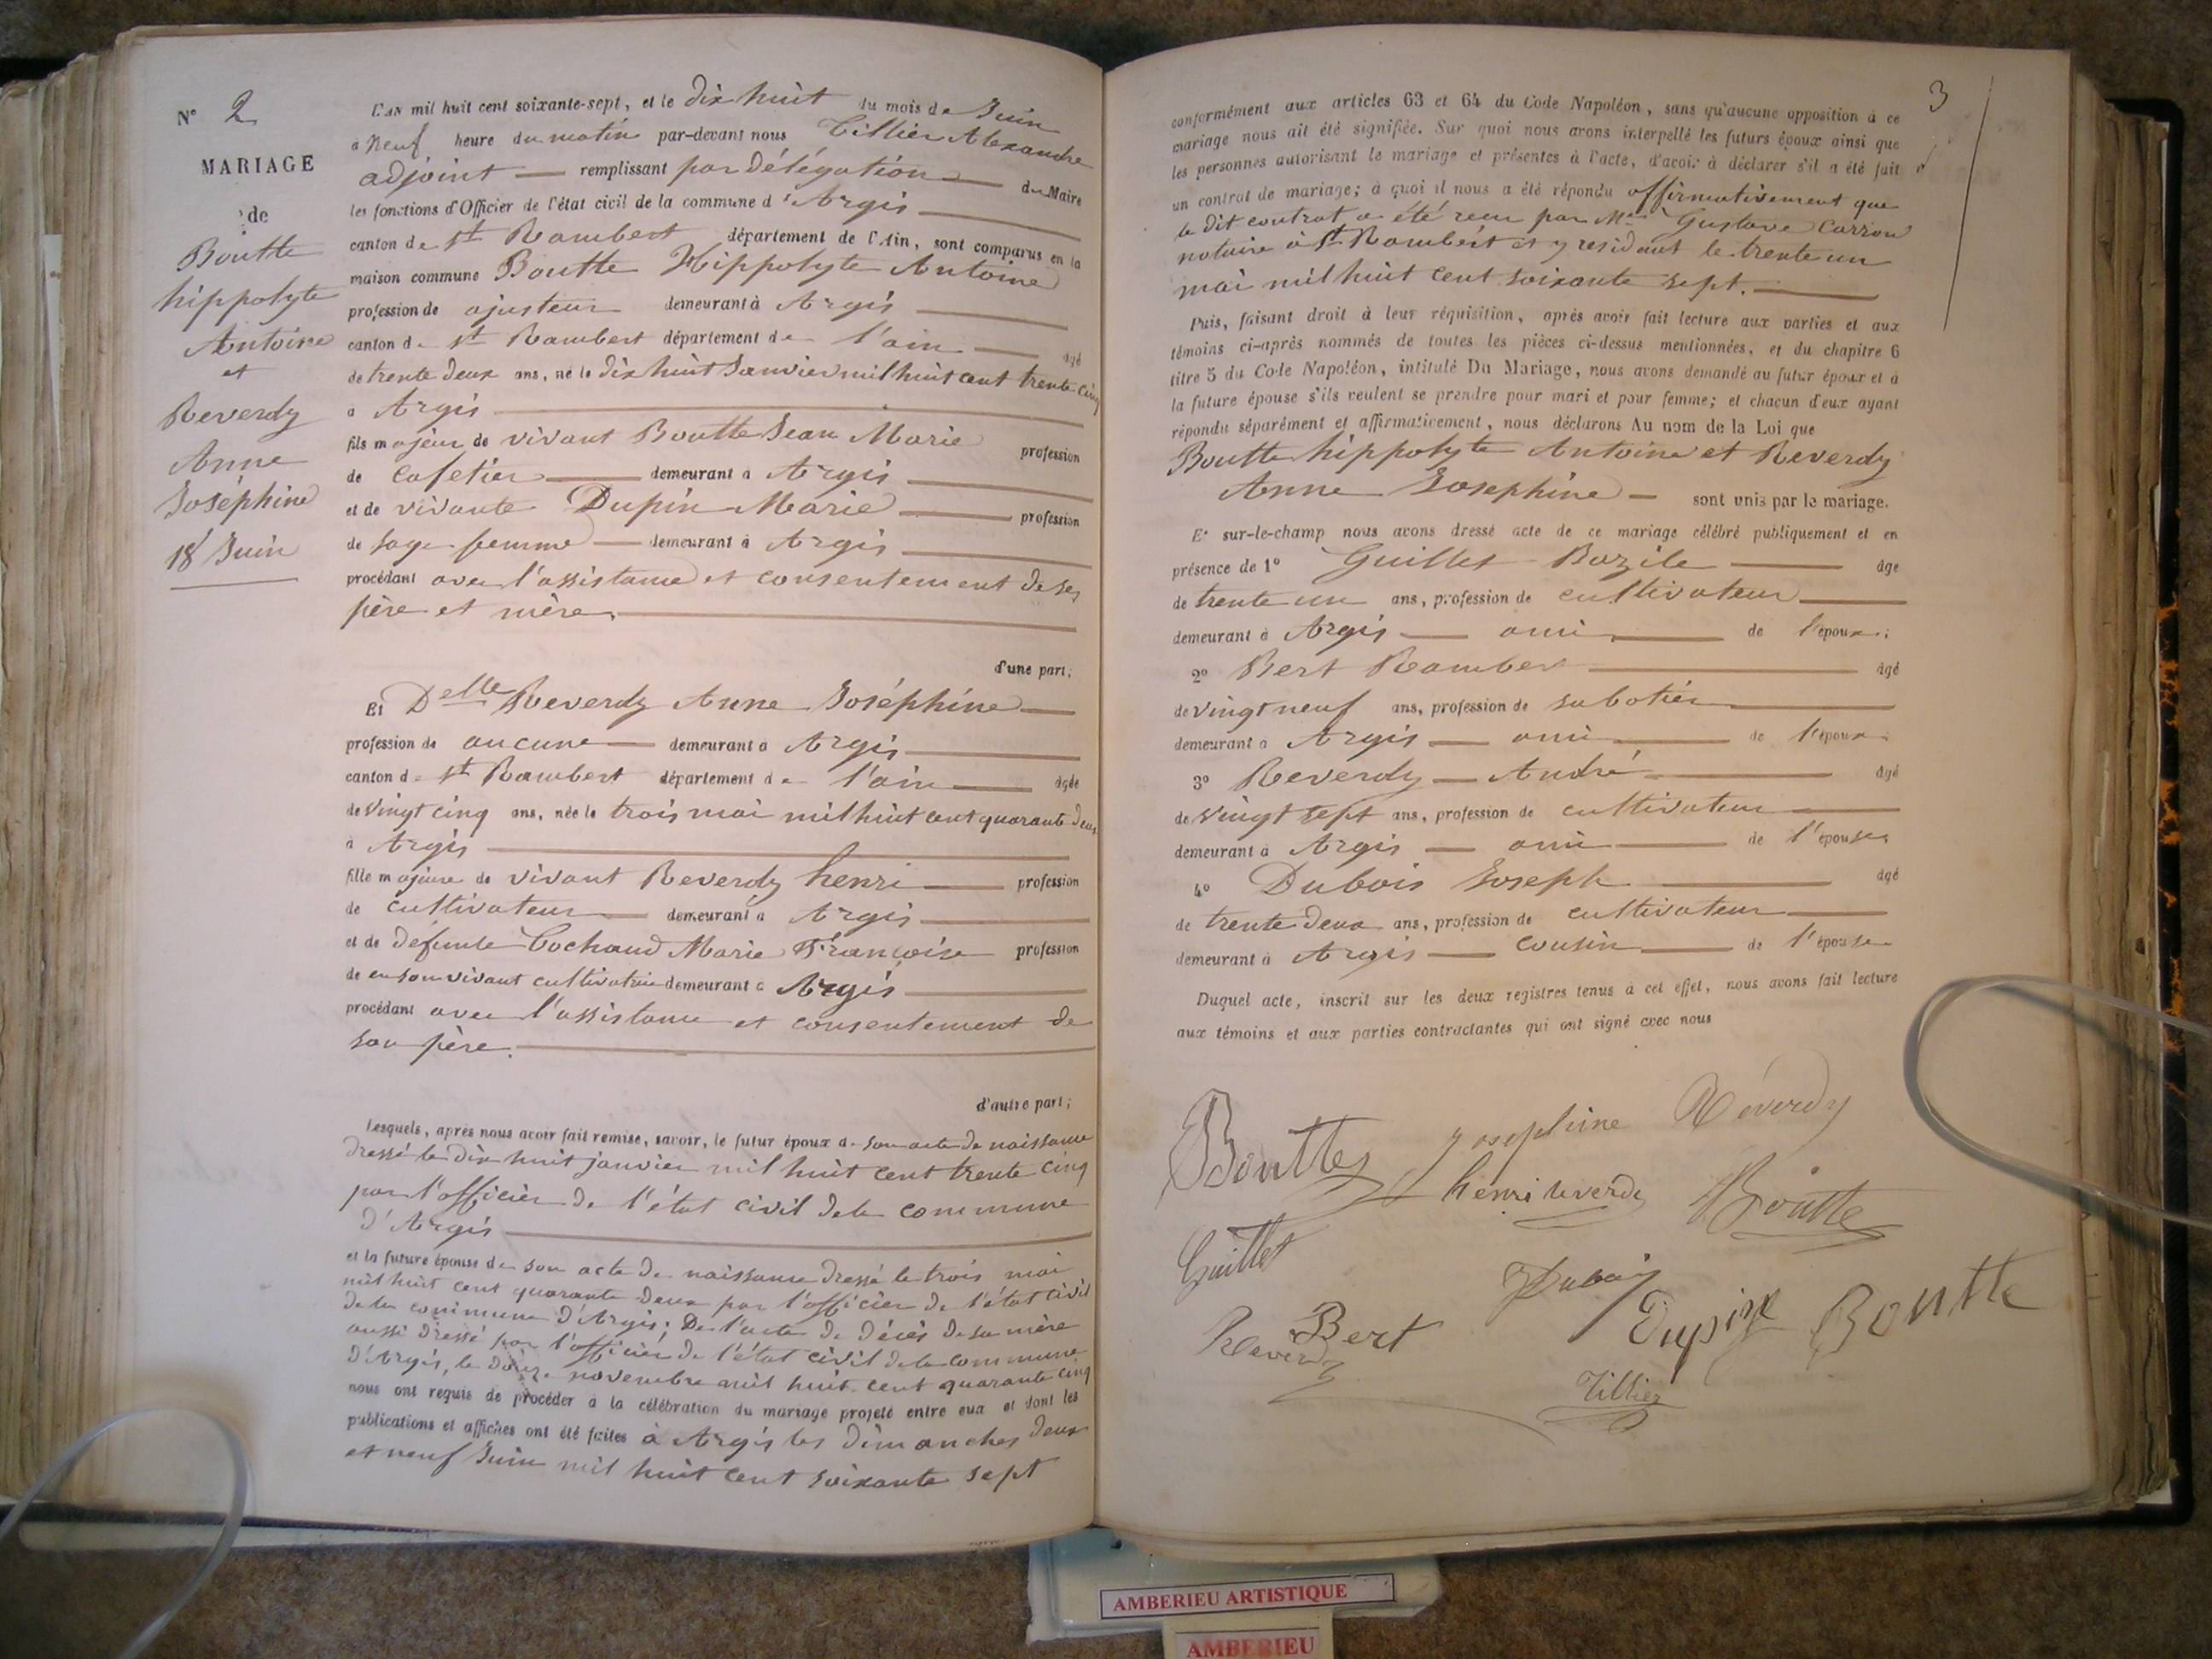 N° 2
MARIAGE
de
Boutte
hippolyte
Antoine
et
Reverdy
Anne
Joséphine
18 Juin
L'AN mil huit cent soixante-sept, et le dix huit du mois de Juin
à neuf heure du matin par-devant nous Tillier Alexandre
adjoint — remplissant par délégation — du Maire
les fonctions d'Officier de l'état civil de la commune d'Argis
canton de St Rambert département de l'Ain, sont comparus en la
maison commune Boutte Hippolyte Antoine
profession de ajusteur demeurant à Argis
canton de St Rambert département de l'ain — âgé
de trente deux ans, né le dix huit Janvier mil huit cent trente cinq
à Argis
fils majeur de vivant Boutte Jean Marie profession
de cafetier — demeurant à Argis
et de vivante Dupin Marie — profession
de sage femme — demeurant à Argis
procédant avec l'assistance et consentement de ses
père et mère.
d'une part;
Et Delle Reverdy Anne Joséphine
profession de aucune — demeurant à Argis
canton de St Rambert département de l'ain — âgée
de vingt cinq ans, née le trois mai mil huit cent quarante deux
à Argis
fille majeure de vivant Reverdy henri — profession
de cultivateur — demeurant à Argis
et de défunte Cochaud Marie Françoise profession
de en son vivant cultivatrice demeurant à Argis
procédant avec l'assistance et consentement de
son père.
d'autre part;
Lesquels, après nous avoir fait remise, savoir, le futur époux de son acte de naissance
dressé le dix huit janvier mil huit cent trente cinq
par l'officier de l'état civil de la commune
d'Argis
et la future épouse de son acte de naissance dressé le trois mai
mil huit cent quarante deux par l'officier de l'état civil
de la commune d'Argis; De l'acte de décès de sa mère
aussi dressé par l'officier de l'état civil de la commune
d'Argis, le novembre mil huit cent quarante cinq
nous ont requis de procéder à la célébration du mariage projeté entre eux et dont les
publications et affiches ont été faites à Argis les dimanches deux
et neuf Juin mil huit cent soixante sept
3
conformément aux articles 63 et 64 du Code Napoléon, sans qu'aucune opposition à ce
mariage nous ait été signifiée. Sur quoi nous avons interpellé les futurs époux ainsi que
les personnes autorisant le mariage et présentes à l'acte, d'avoir à déclarer s'il a été fait
un contrat de mariage; à quoi il nous a été répondu affirmativement que
le dit contrat a été recu par Me Gustave Carron
notaire à St Rambert et y residant le trente un
mai mil huit cent soixante sept.
Puis, faisant droit à leur réquisition, après avoir fait lecture aux parties et aux
témoins ci-après nommés de toutes les pièces ci-dessus mentionnées, et du chapitre 6
titre 5 du Code Napoléon, intitulé Du Mariage, nous avons demandé au futur époux et à
la future épouse s'ils veulent se prendre pour mari et pour femme; et chacun d'eux ayant
répondu séparément et affirmativement, nous déclarons Au nom de la Loi que
Boutte hippolyte Antoine et Reverdy
Anne Josephine — sont unis par le mariage.
Et sur-le-champ nous avons dressé acte de ce mariage célébré publiquement et en
présence de 1° Guillet Bazile — âgé
de trente un ans, profession de cultivateur
demeurant à Argis — ami — de l'époux;
2° Bert Rambert — âgé
de vingt neuf ans, profession de sabotier
demeurant à Argis — ami — de l'époux;
3° Reverdy — André — âgé
de vingt sept ans, profession de cultivateur
demeurant à Argis — ami — de l'épouse
4° Dubois Joseph — âgé
de trente deux ans, profession de cultivateur
demeurant à Argis — cousin — de l'épouse
Duquel acte, inscrit sur les deux registres tenus à cet effet, nous avons fait lecture
aux témoins et aux parties contractantes qui ont signé avec nous
Boutte Josephine Réverdy
henri reverdy Boutte
Guillet
Dubois
Bert Dupin Boutte
Reverdy
Tillier
AMBERIEU ARTISTIQUE
AMBERIEU